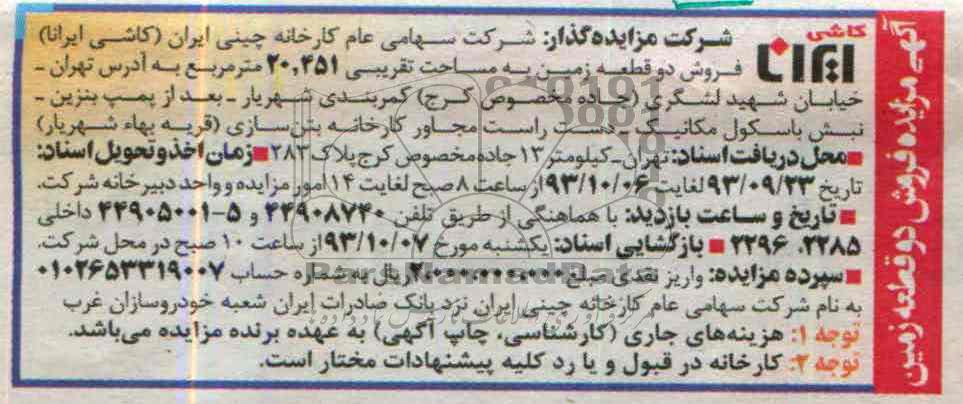 آگهی مزایده فروش دو قطعه زمین
کاشی
ایرانا
شرکت مزایده‌گذار: شرکت سهامی عام کارخانه چینی ایران (کاشی ایرانا)
فروش دو قطعه زمین به مساحت تقریبی ۲۰,۲۵۱ مترمربع به آدرس تهران ـ
خیابان شهید لشگری (جاده مخصوص کرج) کمربندی شهریار ـ بعد از پمپ بنزین ـ
نبش باسکول مکانیک ـ دست راست مجاور کارخانه بتن‌سازی (قریه بهاء شهریار)
■محل دریافت اسناد: تهران ـ کیلومتر ۱۳ جاده مخصوص کرج پلاک ۲۸۳ ■زمان اخذ و تحویل اسناد:
تاریخ ۹۳/۰۹/۲۳ لغایت ۹۳/۱۰/۰۶ از ساعت ۸ صبح لغایت ۱۴ امور مزایده و واحد دبیرخانه شرکت.
■ تاریخ و ساعت بازدید: با هماهنگی از طریق تلفن ۴۴۹۰۸۷۴۰ و ۵-۴۴۹۰۵۰۰۱ داخلی
۲۲۸۵، ۲۲۹۶ ■ بازگشایی اسناد: یکشنبه مورخ ۹۳/۱۰/۰۷ از ساعت ۱۰ صبح در محل شرکت.
■سپرده مزایده: واریز نقدی مبلغ ۲،۰۰۰،۰۰۰،۰۰۰ ریال به شماره حساب ۰۱۰۲۶۵۳۳۱۹۰۰۷
به نام شرکت سهامی عام کارخانه چینی ایران نزد بانک صادرات ایران شعبه خودروسازان غرب
توجه ۱: هزینه‌های جاری (کارشناسی، چاپ آگهی) به عهده برنده مزایده می‌باشد.
توجه ۲: کارخانه در قبول و یا رد کلیه پیشنهادات مختار است.
ParsNamadData